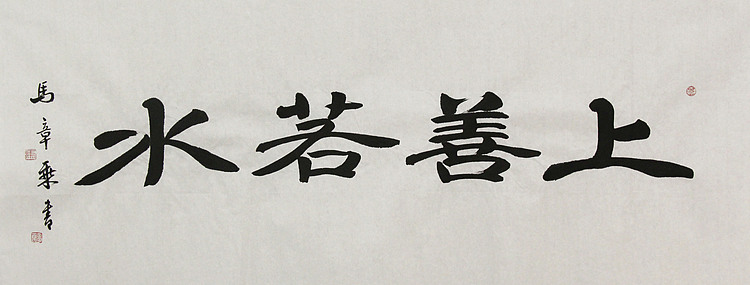 上善若水
馬章乘書